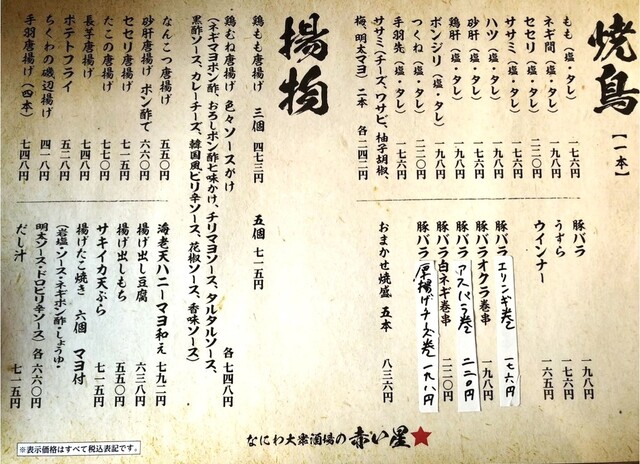 焼鳥【一本】
もも（塩・タレ） 一七六円
ネギ間（塩・タレ） 一七六円
セセリ（塩・タレ） 二二〇円
ササミ（塩・タレ） 一七六円
ハツ（塩・タレ） 一七六円
砂肝（塩・タレ） 一九八円
鶏肝（塩・タレ） 一九八円
ボンジリ（塩・タレ） 一九八円
つくね（塩・タレ） 二二〇円
手羽先（塩・タレ） 一七六円
ササミ（チーズ、ワサビ、柚子胡椒、
梅、明太マヨ）二本 各二四二円
豚バラ 一九八円
うずら 一七六円
ウインナー 一六五円
豚バラエリンギ巻 一七六円
豚バラオクラ巻串 一九八円
豚バラアスパラ巻 二二〇円
豚バラ白ネギ巻串 二二〇円
豚バラ厚揚げチーズ巻 一九八円
おまかせ焼盛 五本 八三六円
揚物
鶏もも唐揚げ 三個 四七三円 五個 七一五円
鶏むね唐揚げ 色々ソースがけ
（ネギマヨポン酢、おろしポン酢七味かけ、チリマヨソース、タルタルソース、
黒酢ソース、カレーチーズ、韓国風ピリ辛ソース、花椒ソース、香味ソース）
各七四八円
なんこつ唐揚げ 五五〇円
砂肝唐揚げ ポン酢で 六六〇円
セセリ唐揚げ 七一五円
たこの唐揚げ 七七〇円
長芋唐揚げ 四四〇円
ポテトフライ 五二八円
ちくわの磯辺揚げ 四一八円
手羽唐揚げ（四本） 七四八円
海老天ハニーマヨ和え 七九二円
揚げ出し豆腐 六三八円
揚げ出しもち 五五〇円
サキイカ天ぷら 七一五円
揚げたこ焼き 六個 マヨ付
（岩塩・ソース・ネギポン酢・しょうゆ・
明太ソース・ドロピリ辛ソース）各六六〇円
だし汁 七一五円
※表示価格はすべて税込表記です。
なにわ大衆酒場の赤い星★